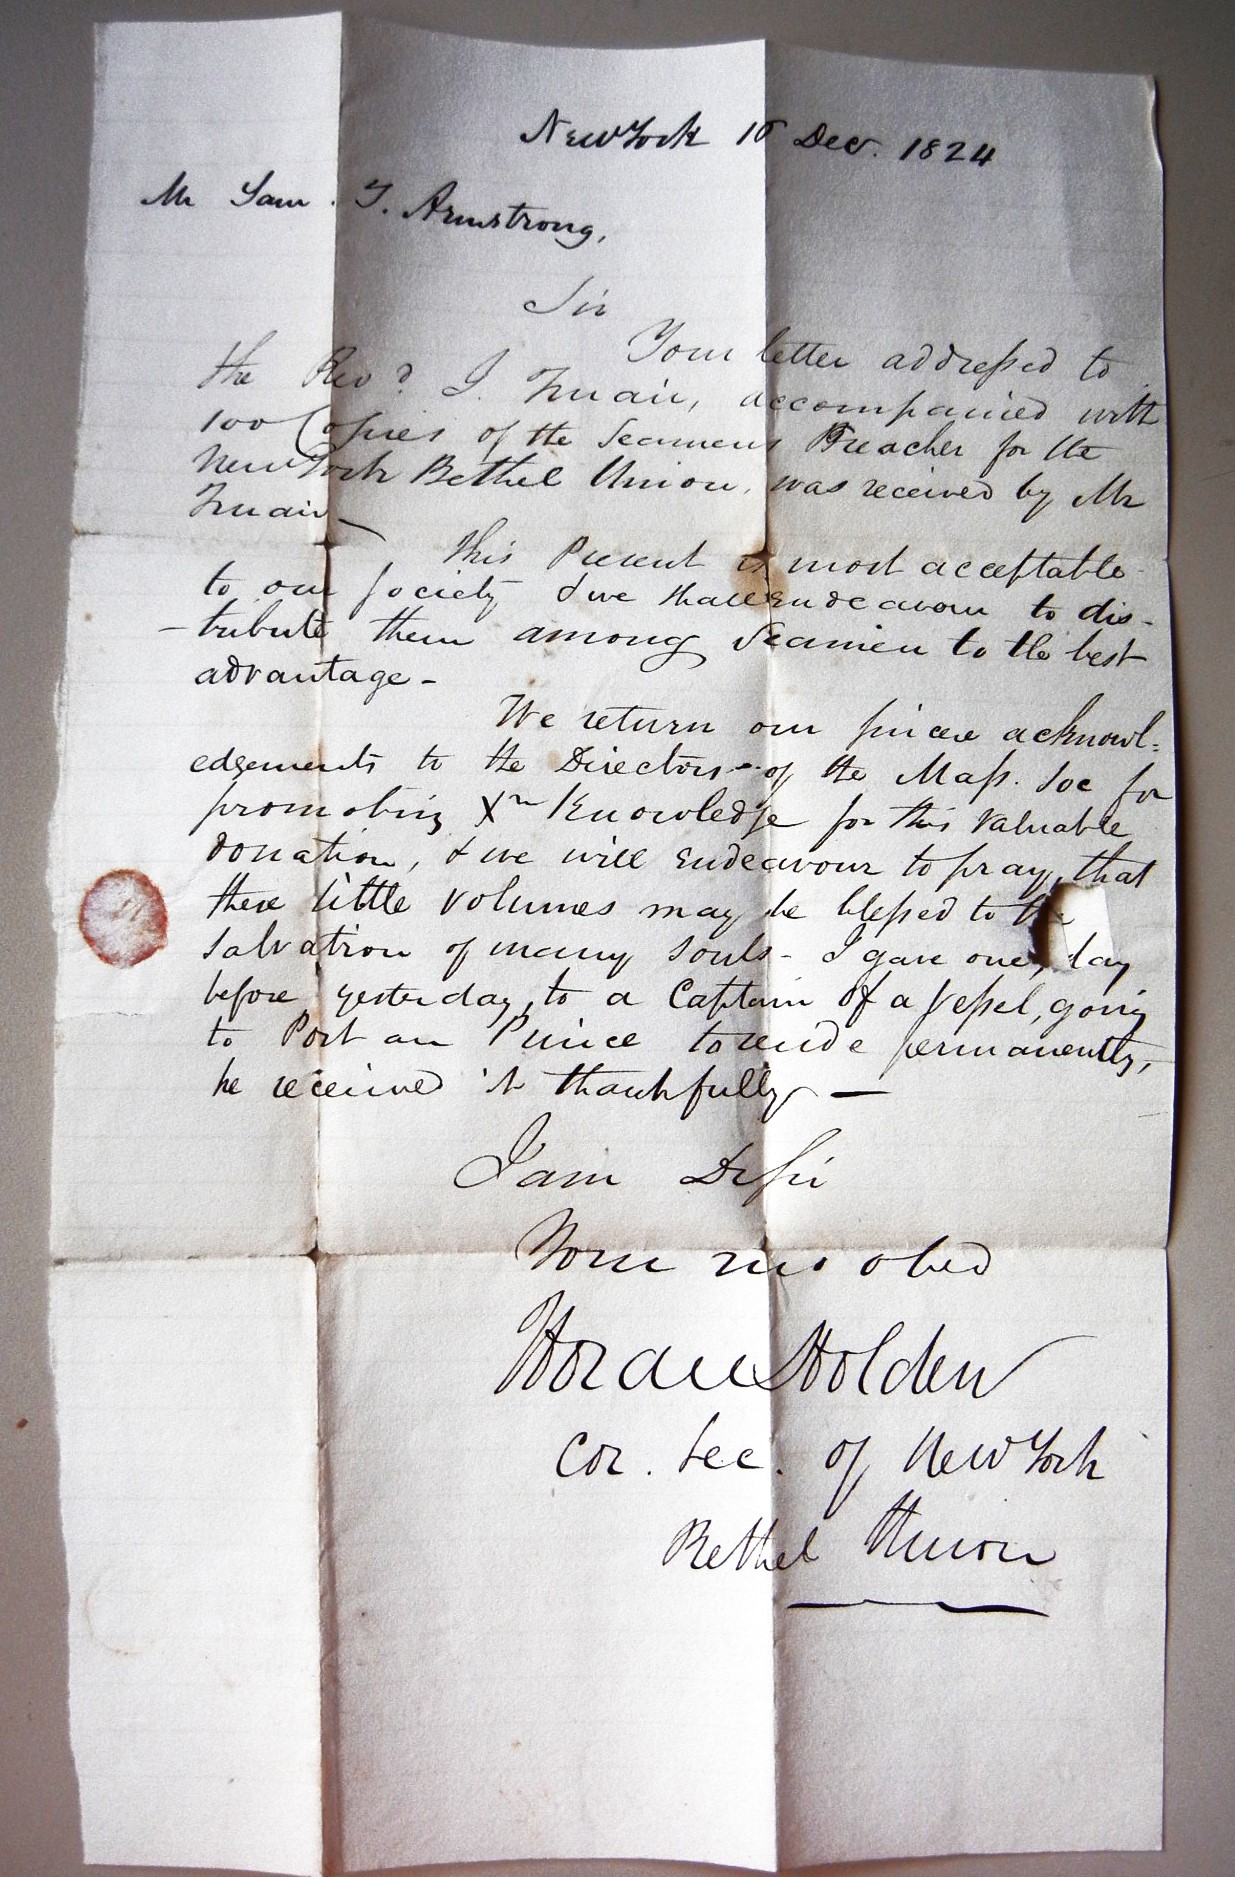 New York 16 Dec. 1824
Mr Sam. T. Armstrong,
Sir
Your letter addressed to
the Revd. J. Truair, accompanied with
100 Copies of the Seamens Preacher for the
New York Bethel Union, was received by Mr
Truair—
This Present is most acceptable
to our society & we shall endeavour to dis-
-tribute them among Seamen to the best
advantage-
We return our sincere acknowl-
edgements to the Directors of the Mass. Soc for
promoting Xn Knowledge for this valuable
donation, & we will endeavour to pray, that
these little volumes may be blessed to the
salvation of many souls- I gave one, day
before yesterday, to a Captain of a vessel, going
to Port au Prince to reside permanently,
he received it thankfully—
I am Dr Sir
Your mo obed
Horace Holden
Cor. Sec. of New York
Bethel Union